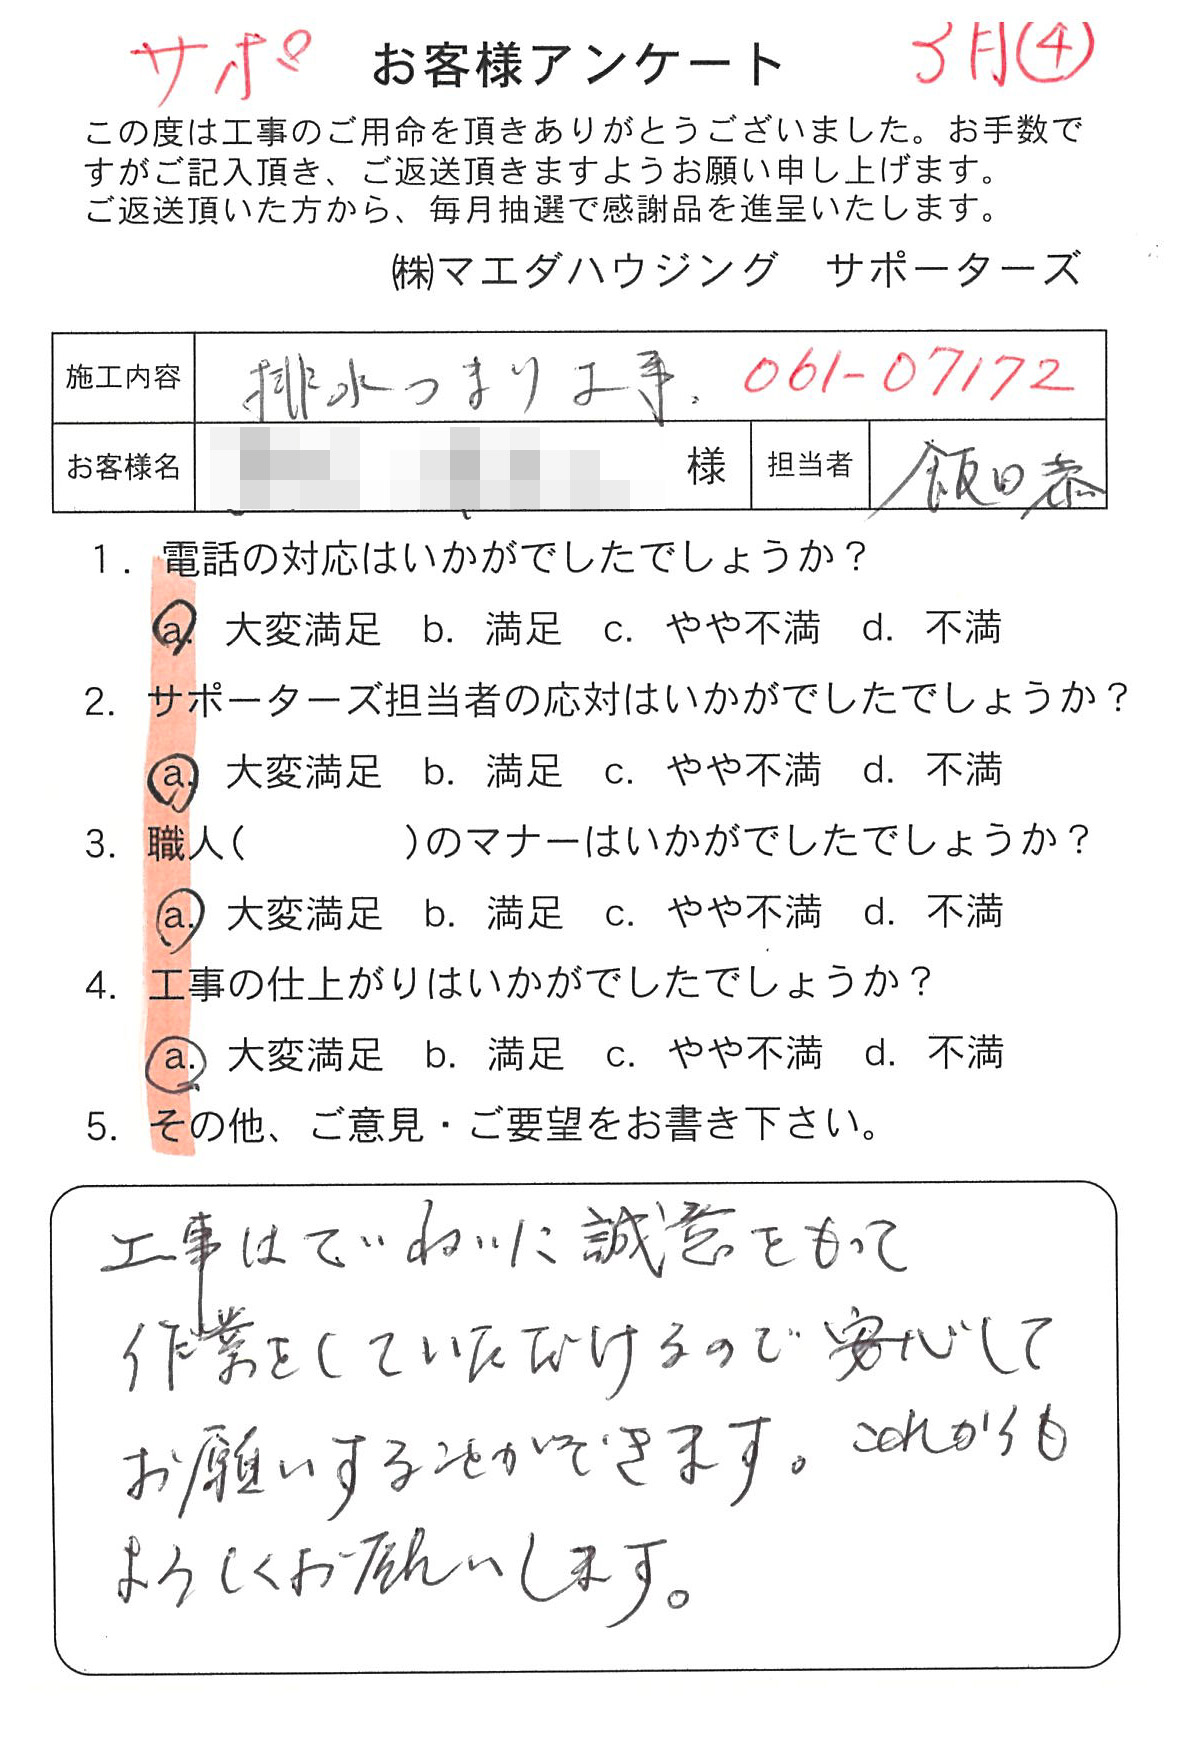 サポ お客様アンケート 3月④
この度は工事のご用命を頂きありがとうございました。お手数で
すがご記入頂き、ご返送頂きますようお願い申し上げます。
ご返送頂いた方から、毎月抽選で感謝品を進呈いたします。
㈱マエダハウジング サポーターズ
施工内容 排水つまり工事. 061-07172
お客様名 様 担当者 飯田恭
1. 電話の対応はいかがでしたでしょうか？
a. 大変満足 b. 満足 c. やや不満 d. 不満
2. サポーターズ担当者の応対はいかがでしたでしょうか？
a. 大変満足 b. 満足 c. やや不満 d. 不満
3. 職人( )のマナーはいかがでしたでしょうか？
a. 大変満足 b. 満足 c. やや不満 d. 不満
4. 工事の仕上がりはいかがでしたでしょうか？
a. 大変満足 b. 満足 c. やや不満 d. 不満
5. その他、ご意見・ご要望をお書き下さい。
工事はていねいに誠意をもって
作業をしていただけるので安心して
お願いすることができます。これからも
よろしくお願いします。